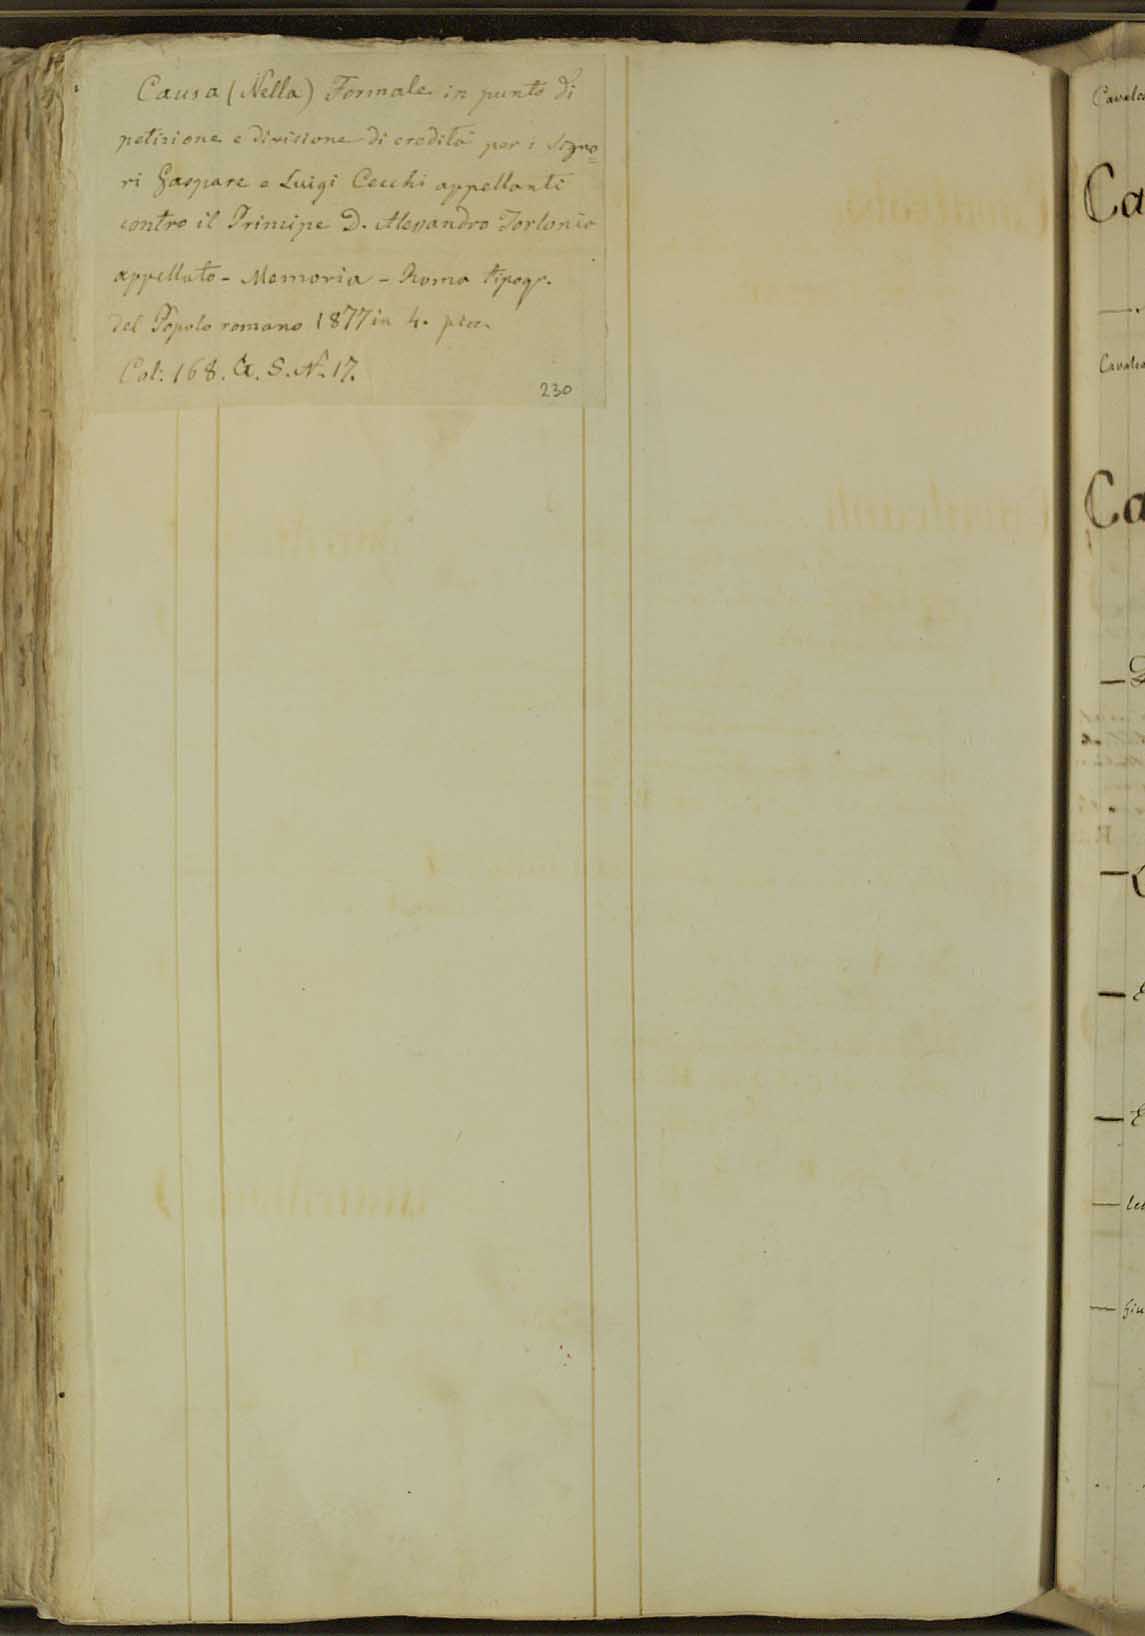 Causa (Nella) Formale in punto di
petizione e divisione di eredità per i Signo=
ri Gaspare e Luigi Cecchi appellanti
contro il Principe D. Alessandro Torlonia
appellato - Memoria - Roma tipogr.
del Popolo romano 1877 in 4. picc.
Col: 168. A. S. N. 17.
230
Ca
Ca